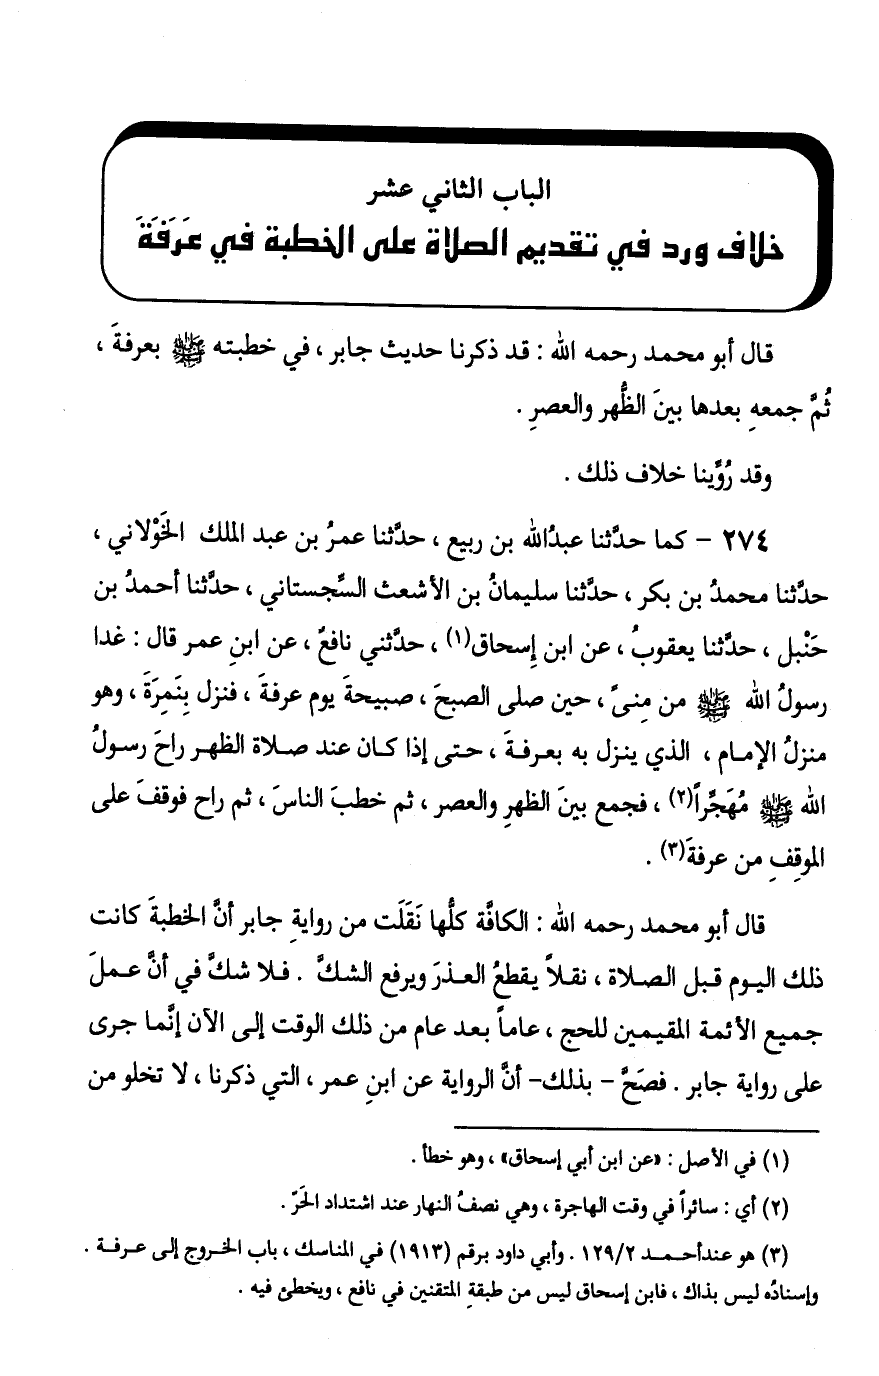 الباب الثاني عشر
خلاف ورد في تقديم الصلاة على الخطبة في عَرَفَةَ
قال أبو محمد رحمه الله : قد ذكرنا حديث جابر ، في خطبته ﷺ بعرفةَ ،
ثُمَّ جمعهِ بعدها بينَ الظُّهر والعصرِ .
وقد رُوِّينا خلاف ذلك .
٢٧٤ – كما حدَّثنا عبدُالله بن ربيع ، حدَّثنا عمرُ بن عبد الملك الخَوْلاني ،
حدَّثنا محمدُ بن بكر ، حدَّثنا سليمانُ بن الأشعث السِّجستاني ، حدَّثنا أحمدُ بن
حَنْبل ، حدَّثنا يعقوبُ ، عن ابن إسحاق(١) ، حدَّثني نافعٌ ، عن ابنِ عمر قال : غدا
رسولُ الله ﷺ من مِنىً ، حين صلى الصبحَ ، صبيحةَ يوم عرفةَ ، فنزل بِنَمِرَةَ ، وهو
منزلُ الإمام ، الذي ينزل به بعرفةَ ، حتى إذا كان عند صلاة الظهر راحَ رسولُ
الله ﷺ مُهَجِّراً(٢) ، فجمع بينَ الظهرِ والعصر ، ثم خطبَ الناسَ ، ثم راح فوقفَ على
الموقِفِ من عرفةَ(٣) .
قال أبو محمد رحمه الله : الكافَّة كلُّها نَقَلَت من روايةِ جابر أنَّ الخطبةَ كانت
ذلك اليوم قبل الصلاة ، نقلاً يقطعُ العذرَ ويرفع الشكَّ . فلا شكَّ في أنَّ عملَ
جميع الأئمة المقيمين للحج ، عاماً بعد عام من ذلك الوقت إلى الآن إنَّما جرى
على رواية جابر . فصَحَّ – بذلك– أنَّ الرواية عن ابنِ عمر ، التي ذكرنا ، لا تخلو من
(١) في الأصل : «عن ابن أبي إسحاق» ، وهو خطأ .
(٢) أي : سائراً في وقت الهاجرة ، وهي نصفُ النهار عند اشتداد الحَرّ .
(٣) هو عندأحمد ١٢٩/٢ . وأبي داود برقم (١٩١٣) في المناسك ، باب الخروج إلى عرفة .
وإسنادُه ليس بذاك ، فابن إسحاق ليس من طبقةِ المتقنين في نافع ، ويخطئ فيه .